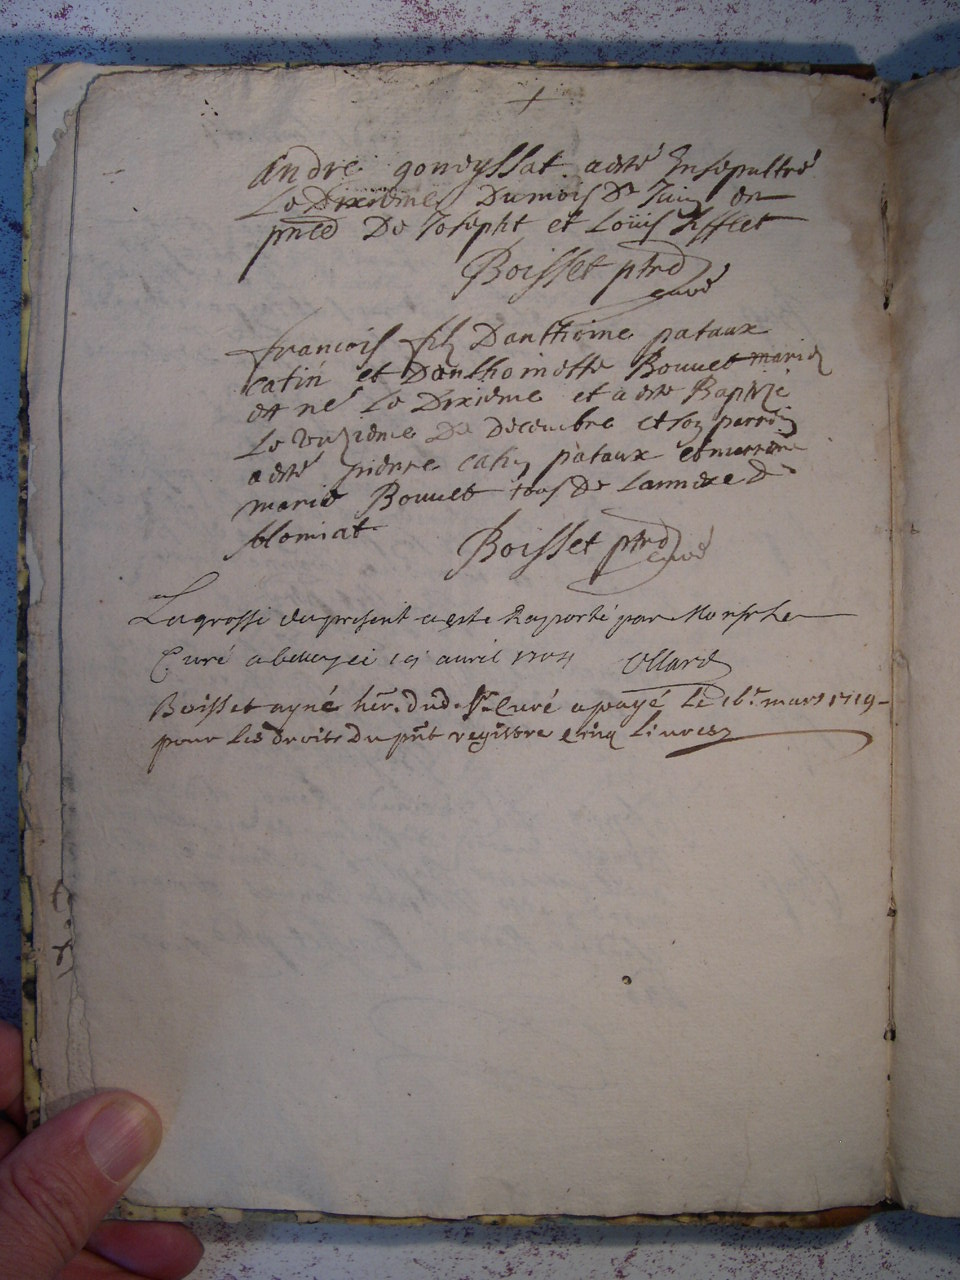 +
andre goneyssat a esté Ensepultré
Le Dixieme Du mois De Juin en
pnce De Josepht et Loüis Sifflet
Boisset ptre
curé
francois fils Danthoine pataux
catin et Danthoinette Bouuet mariés
est né Le Dixieme et a esté Baptizé
Le unzieme De Decembre et son parrin
a esté pierre catin pataux et marrene
marie Bouuet tous De Lannexe De
Boisset ptre
curé
La grosse du present a este Raporté par Monsr Le
Curé a belley ce 19 avril 1704 Ollard
Boisset ayné her. dud. Sr. Curé a payé Le 16r mars 1719
pour les droits Du pnt registre cinq Liures